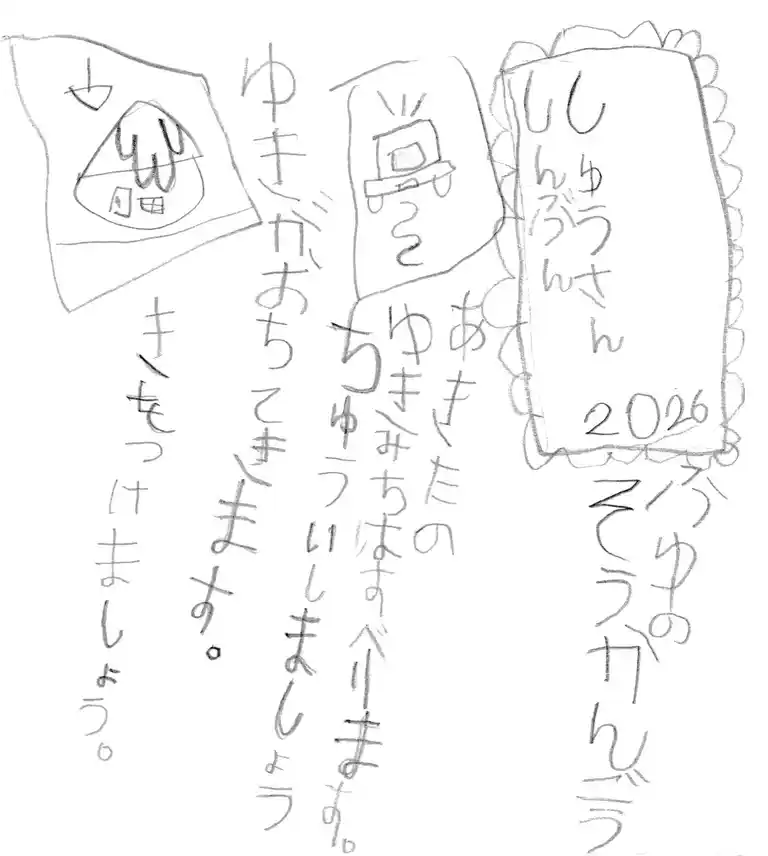 しゅうさん
しんぶん
2026
ふゆの
ぞうかんごう
あきたの
ゆきみちはすべります。
ちゅういしましょう
ゆきがおちてきます。
きをつけましょう。